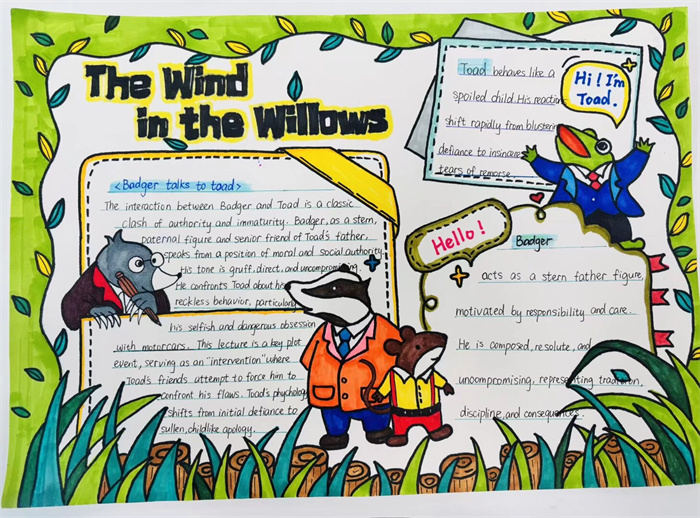 The Wind
in the Willows
<Badger talks to toad>
The interaction between Badger and Toad is a classic
clash of authority and immaturity. Badger, as a stern,
paternal figure and senior friend of Toad's father,
speaks from a position of moral and social authority.
His tone is gruff, direct, and uncompromising.
He confronts Toad about his
reckless behavior, particularly
his selfish and dangerous obsession
with motorcars. This lecture is a key plot
event, serving as an "intervention" where
Toad's friends attempt to force him to
confront his flaws. Toad's phychology
shifts from initial defiance to
sullen, childlike apology.
Toad behaves like a
spoiled child. His reactions
shift rapidly from blustering
defiance to insincere
tears of remorse.
Hi! I'm
Toad.
Hello!
Badger
acts as a stern father figure,
motivated by responsibility and care.
He is composed, resolute, and
uncompromising, representing tradition,
discipline, and consequences.